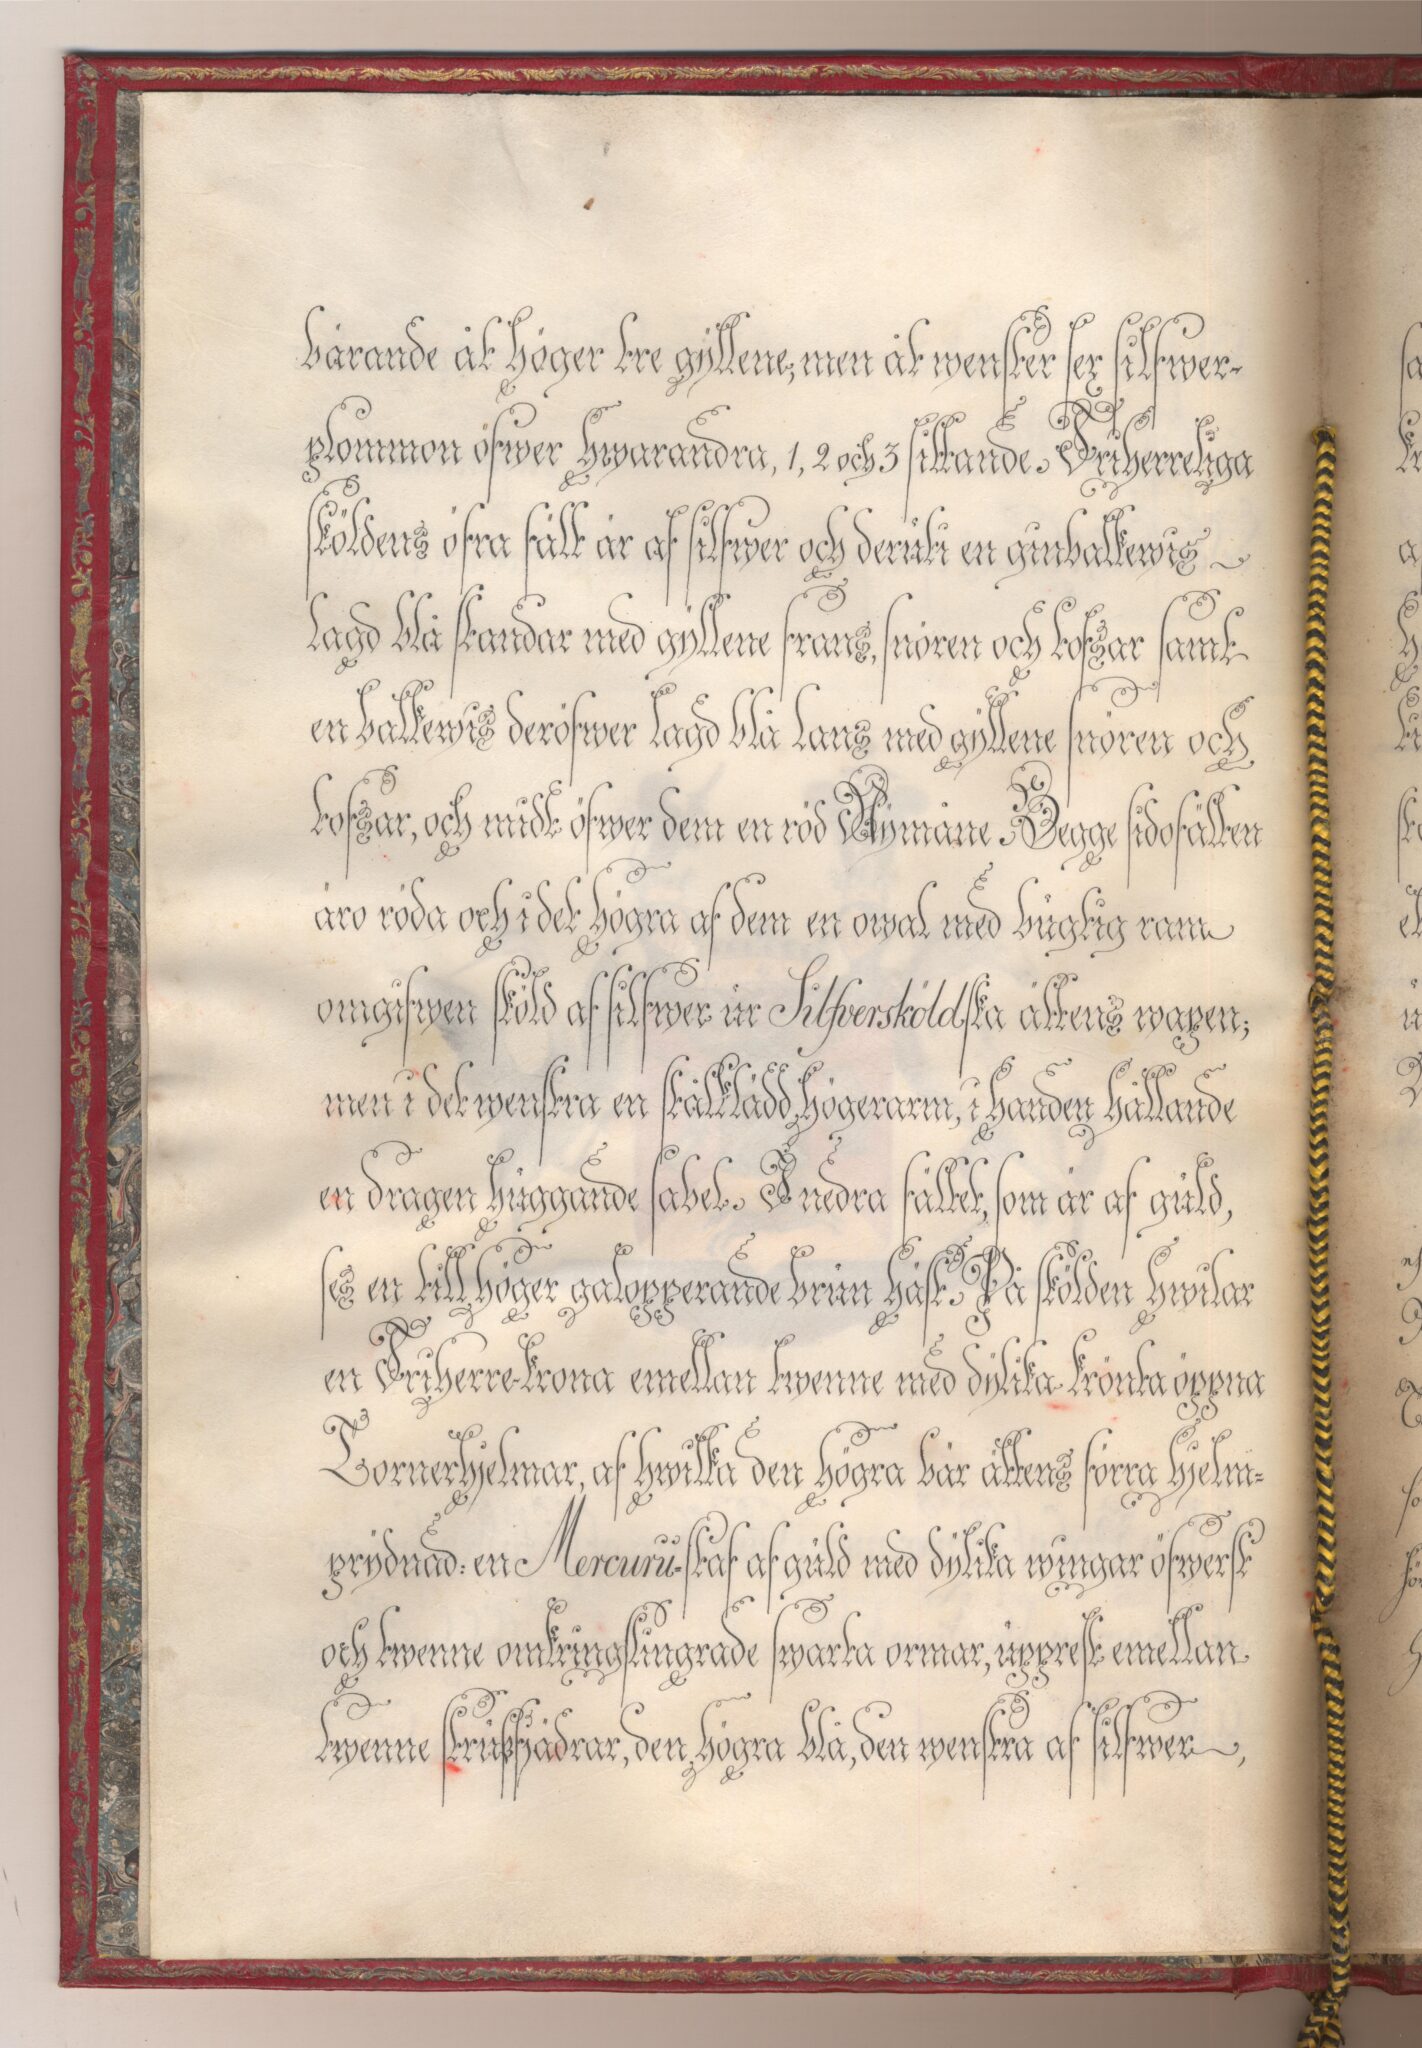 bärande åt höger tre gyllene, men åt wenster sex silfwer-
plommon öfwer hwarandra, 1, 2 och 3 sittande. Friherreliga
sköldens öfra fält är af silfwer och deruti en ginbalkewis
lagd blå standar med gyllene frans, snören och tofsar samt
en balkewis deröfwer lagd blå lans med gyllene snören och
tofsar, och midt öfwer dem en röd Nymåne. Begge sidofälten
äro röda och i det högra af dem en owal med bugtig ram
omgifwen sköld af silfwer ur Silfversköldska ättens wapen;
men i det wenstra en stålklädd högerarm, i handen hållande
en dragen huggande sabel. I nedra fältet, som är af guld,
ses en till höger galopperande brun häst. På skölden hwilar
en Friherre-krona emellan twenne med dylika krönta öppna
Tornerhjelmar, af hwilka den högra bär ättens förra hjelm-
prydnad: en Mercurii-staf af guld med dylika wingar öfwerst
och twenne omkringslingrade swarta ormar, upprest emellan
twenne strutsfjädrar, den högra blå, den wenstra af silfwer,